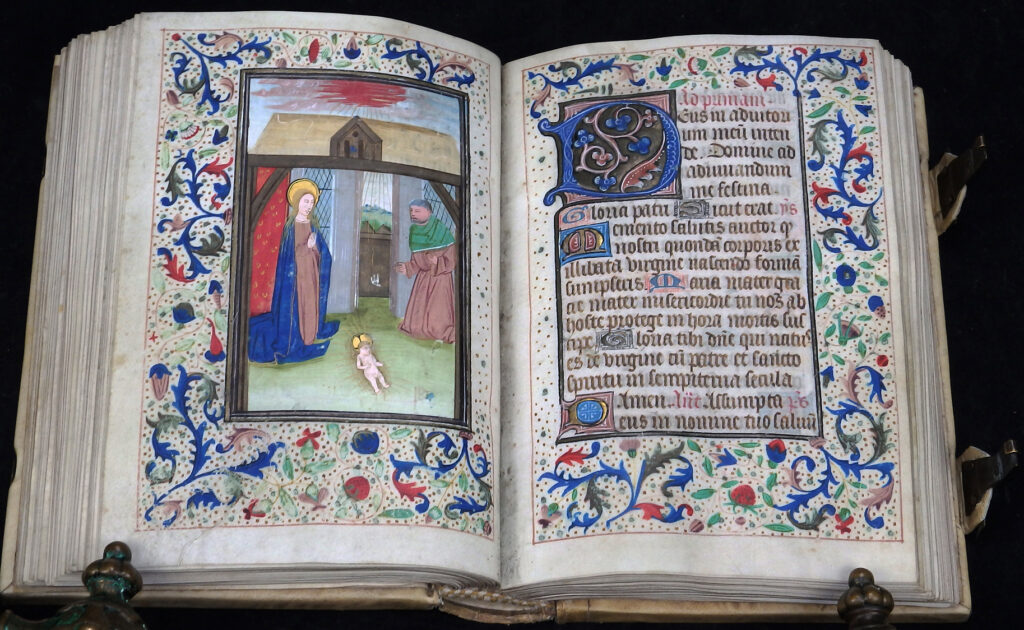 Ad primam
Deus in adiutori
um meū inten
de. Domine ad
adiuuandum
me festina.
Gloria patri Sicut erat. ys
Memento salutis auctor q
nostri quondā corporis ex
illibata virgine nascendo formā
sumpseris Maria mater gra
cie mater misericordie tu nos ab
hoste protege in hora mortis sus
cipe Gloria tibi dn̄e qui natus
es de virgine cū patre et sancto
spiritu in sempiterna secula
Amen. Añt Assumpta ps
Deus in nomine tuo saluū